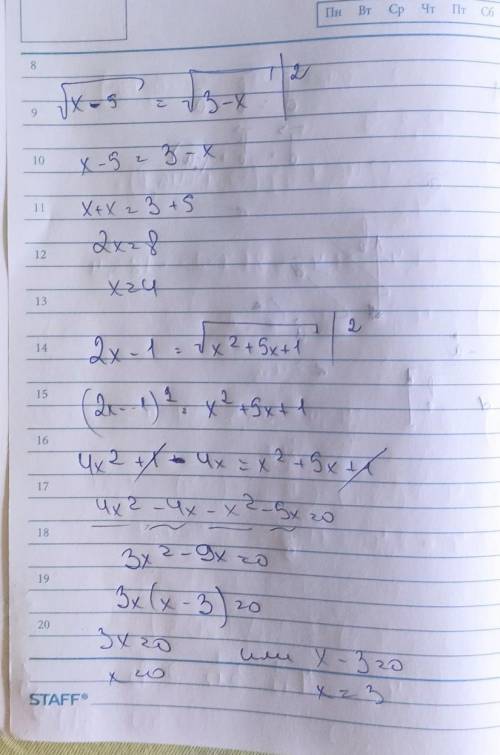 Пн Вт Ср Чт Пт Сб
8
√(x-5) = √(3-x) |²
9
10 x-5 = 3-x
11 x+x = 3+5
2x=8
12
x=4
13
14 2x-1 = √(x²+5x+1) |²
15 (2x-1)² = x²+5x+1
16
4x²+1-4x = x²+5x+1
17
4x²-4x-x²-5x=0
18
3x²-9x=0
19
3x(x-3)=0
20
3x=0 или x-3=0
x=0 x=3
STAFF®